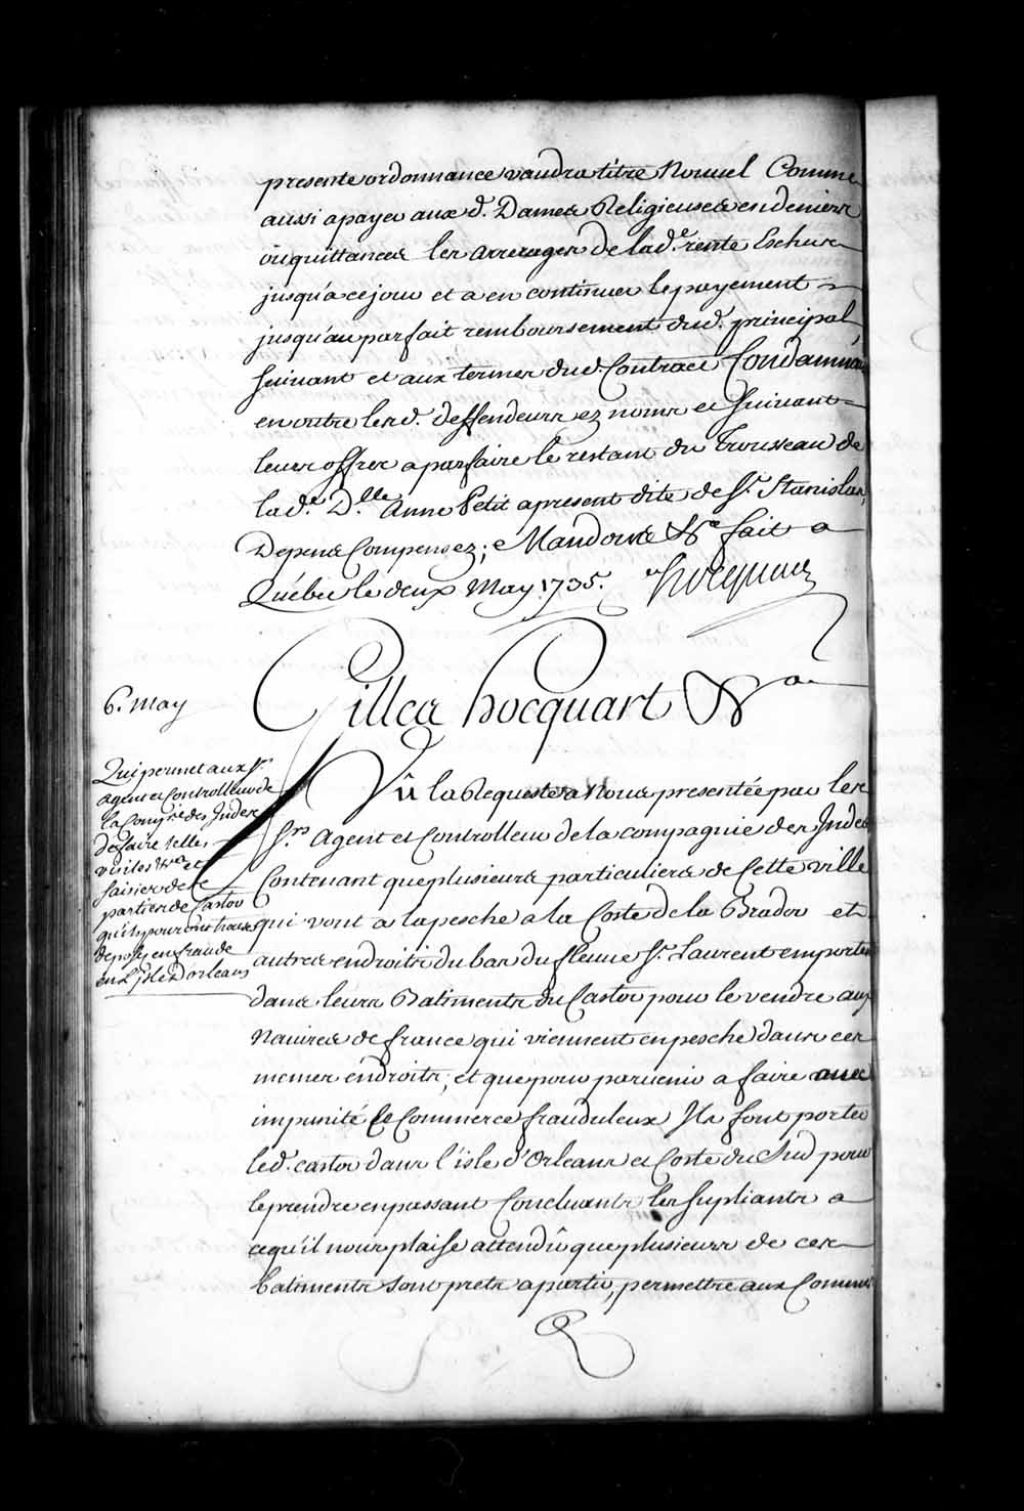 presente ordonnance vaudra titre Nouuel Comme
aussi a payer aux d. Dames Religieuses en deniers
ou quittances les arrerages de lad.e rente Eschus
jusqu'a ce jour et a en continuer le payement
jusqu'au parfait remboursement dud. principal
suiuant et aux termes dud. Contract Condamnons
en outre lesd. deffendeurs ez noms et suiuant
leurs offres a parfaire le restant du Trousseau de
lad.e D.lle Anne Petit apresent dite de St. Stanislas,
Depens Compensez; Mandons &c.e fait a
Québec le deux May 1735. hocquart
6. may
Gilles hocquart &.a
Qui permet aux Srs.
agent et Controlleur de
la Comp.e des Indes
de faire telles
visites &ra et
saisies de
parties de Castor
qu'ils pourront trouuer
deposés en fraude
en L'isle Dorleans
Vû la Requeste a Nous presentée par les
Srs. Agent et Controlleur de la compagnie des Indes
Contenant que plusieurs particuliers de Cette ville
qui vont a la pesche a la Coste de la Brador et
autres endroits du bas du fleuue St. Laurent emportent
dans leurs Batiments du Castor pour le vendre aux
Nauires de france qui viennent en pesche dans ces
memes endroits; et que pour paruenir a faire auec
impunité Ce Commerce frauduleux Ils font porter
led. castor dans l'isle d'Orleans et Coste du Sud pour
le prendre en passant Concluants les supliants a
ce qu'il nous plaise attendû que plusieurs de ces
batiments sont prets a partir, permettre aux Commis